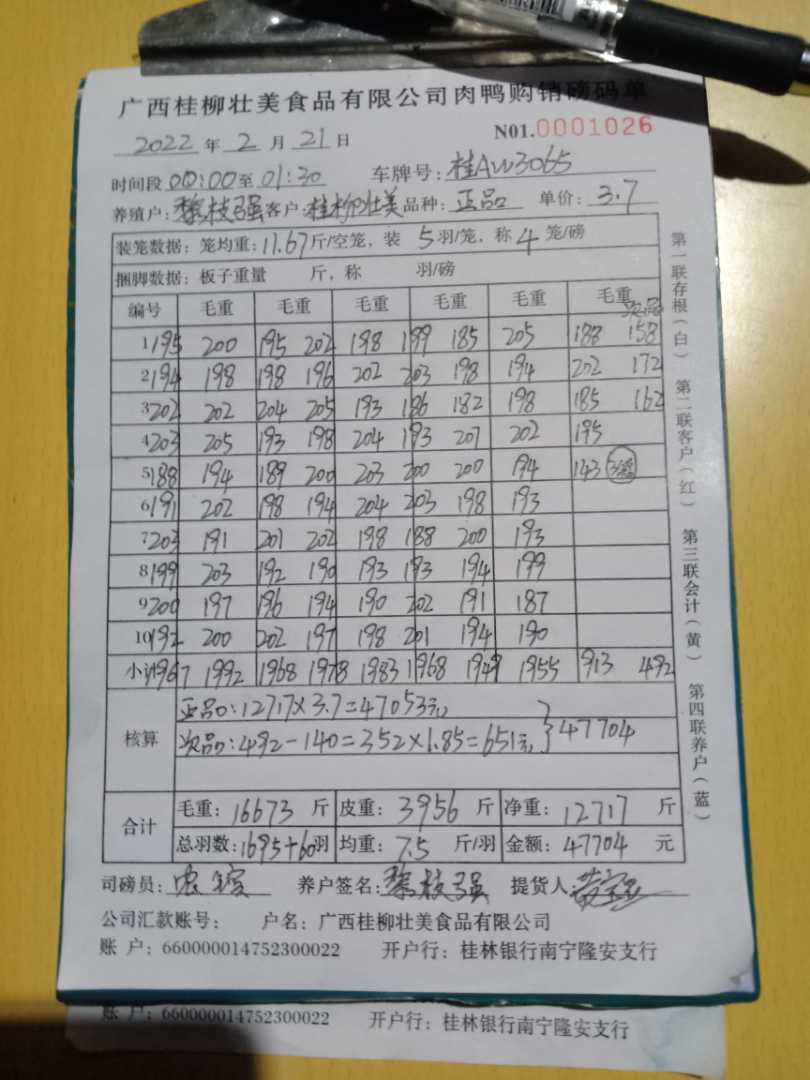 广西桂柳壮美食品有限公司肉鸭购销磅码单
2022 年 2 月 21 日 N01.0001026
时间段 00:00 至 01:30 车牌号: 桂AW3065
养殖户: 黎枝强 客户: 桂柳壮美 品种: 正品 单价: 3.7
装笼数据: 笼均重: 11.67 斤/空笼, 装 5 羽/笼, 称 4 笼/磅
捆脚数据: 板子重量 斤, 称 羽/磅
编号 毛重 毛重 毛重 毛重 毛重 毛重
次品
1 195 200 195 202 198 199 185 205 188 158
2 194 198 198 196 202 203 198 194 202 172
3 202 202 204 205 193 186 182 198 185 162
4 203 205 193 198 204 193 207 202 195
5 188 194 189 200 203 200 200 194 143
6 191 202 198 194 204 203 198 193
7 203 191 201 202 198 188 200 193
8 199 203 192 190 193 193 194 199
9 200 197 196 194 190 202 191 187
10 192 200 202 197 198 201 194 190
小计 1967 1992 1968 1978 1983 1968 1949 1955 913 492
核算
正品: 12717×3.7=47053元
次品: 492-140=352×1.85=651元 } 47704
合计
毛重: 16673 斤 皮重: 3956 斤 净重: 12717 斤
总羽数: 1695+60 羽 均重: 7.5 斤/羽 金额: 47704 元
司磅员: 养户签名: 黎枝强 提货人:
公司汇款账号: 户名: 广西桂柳壮美食品有限公司
账 户: 660000014752300022 开户行: 桂林银行南宁隆安支行
第一联存根(白) 第二联客户(红) 第三联会计(黄) 第四联养户(蓝)
账 户: 660000014752300022 开户行: 桂林银行南宁隆安支行